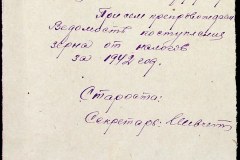 При сем препровождаем
Ведомость поступления
зерна от налогов
за 1942 год.
Староста:
Секретарь: